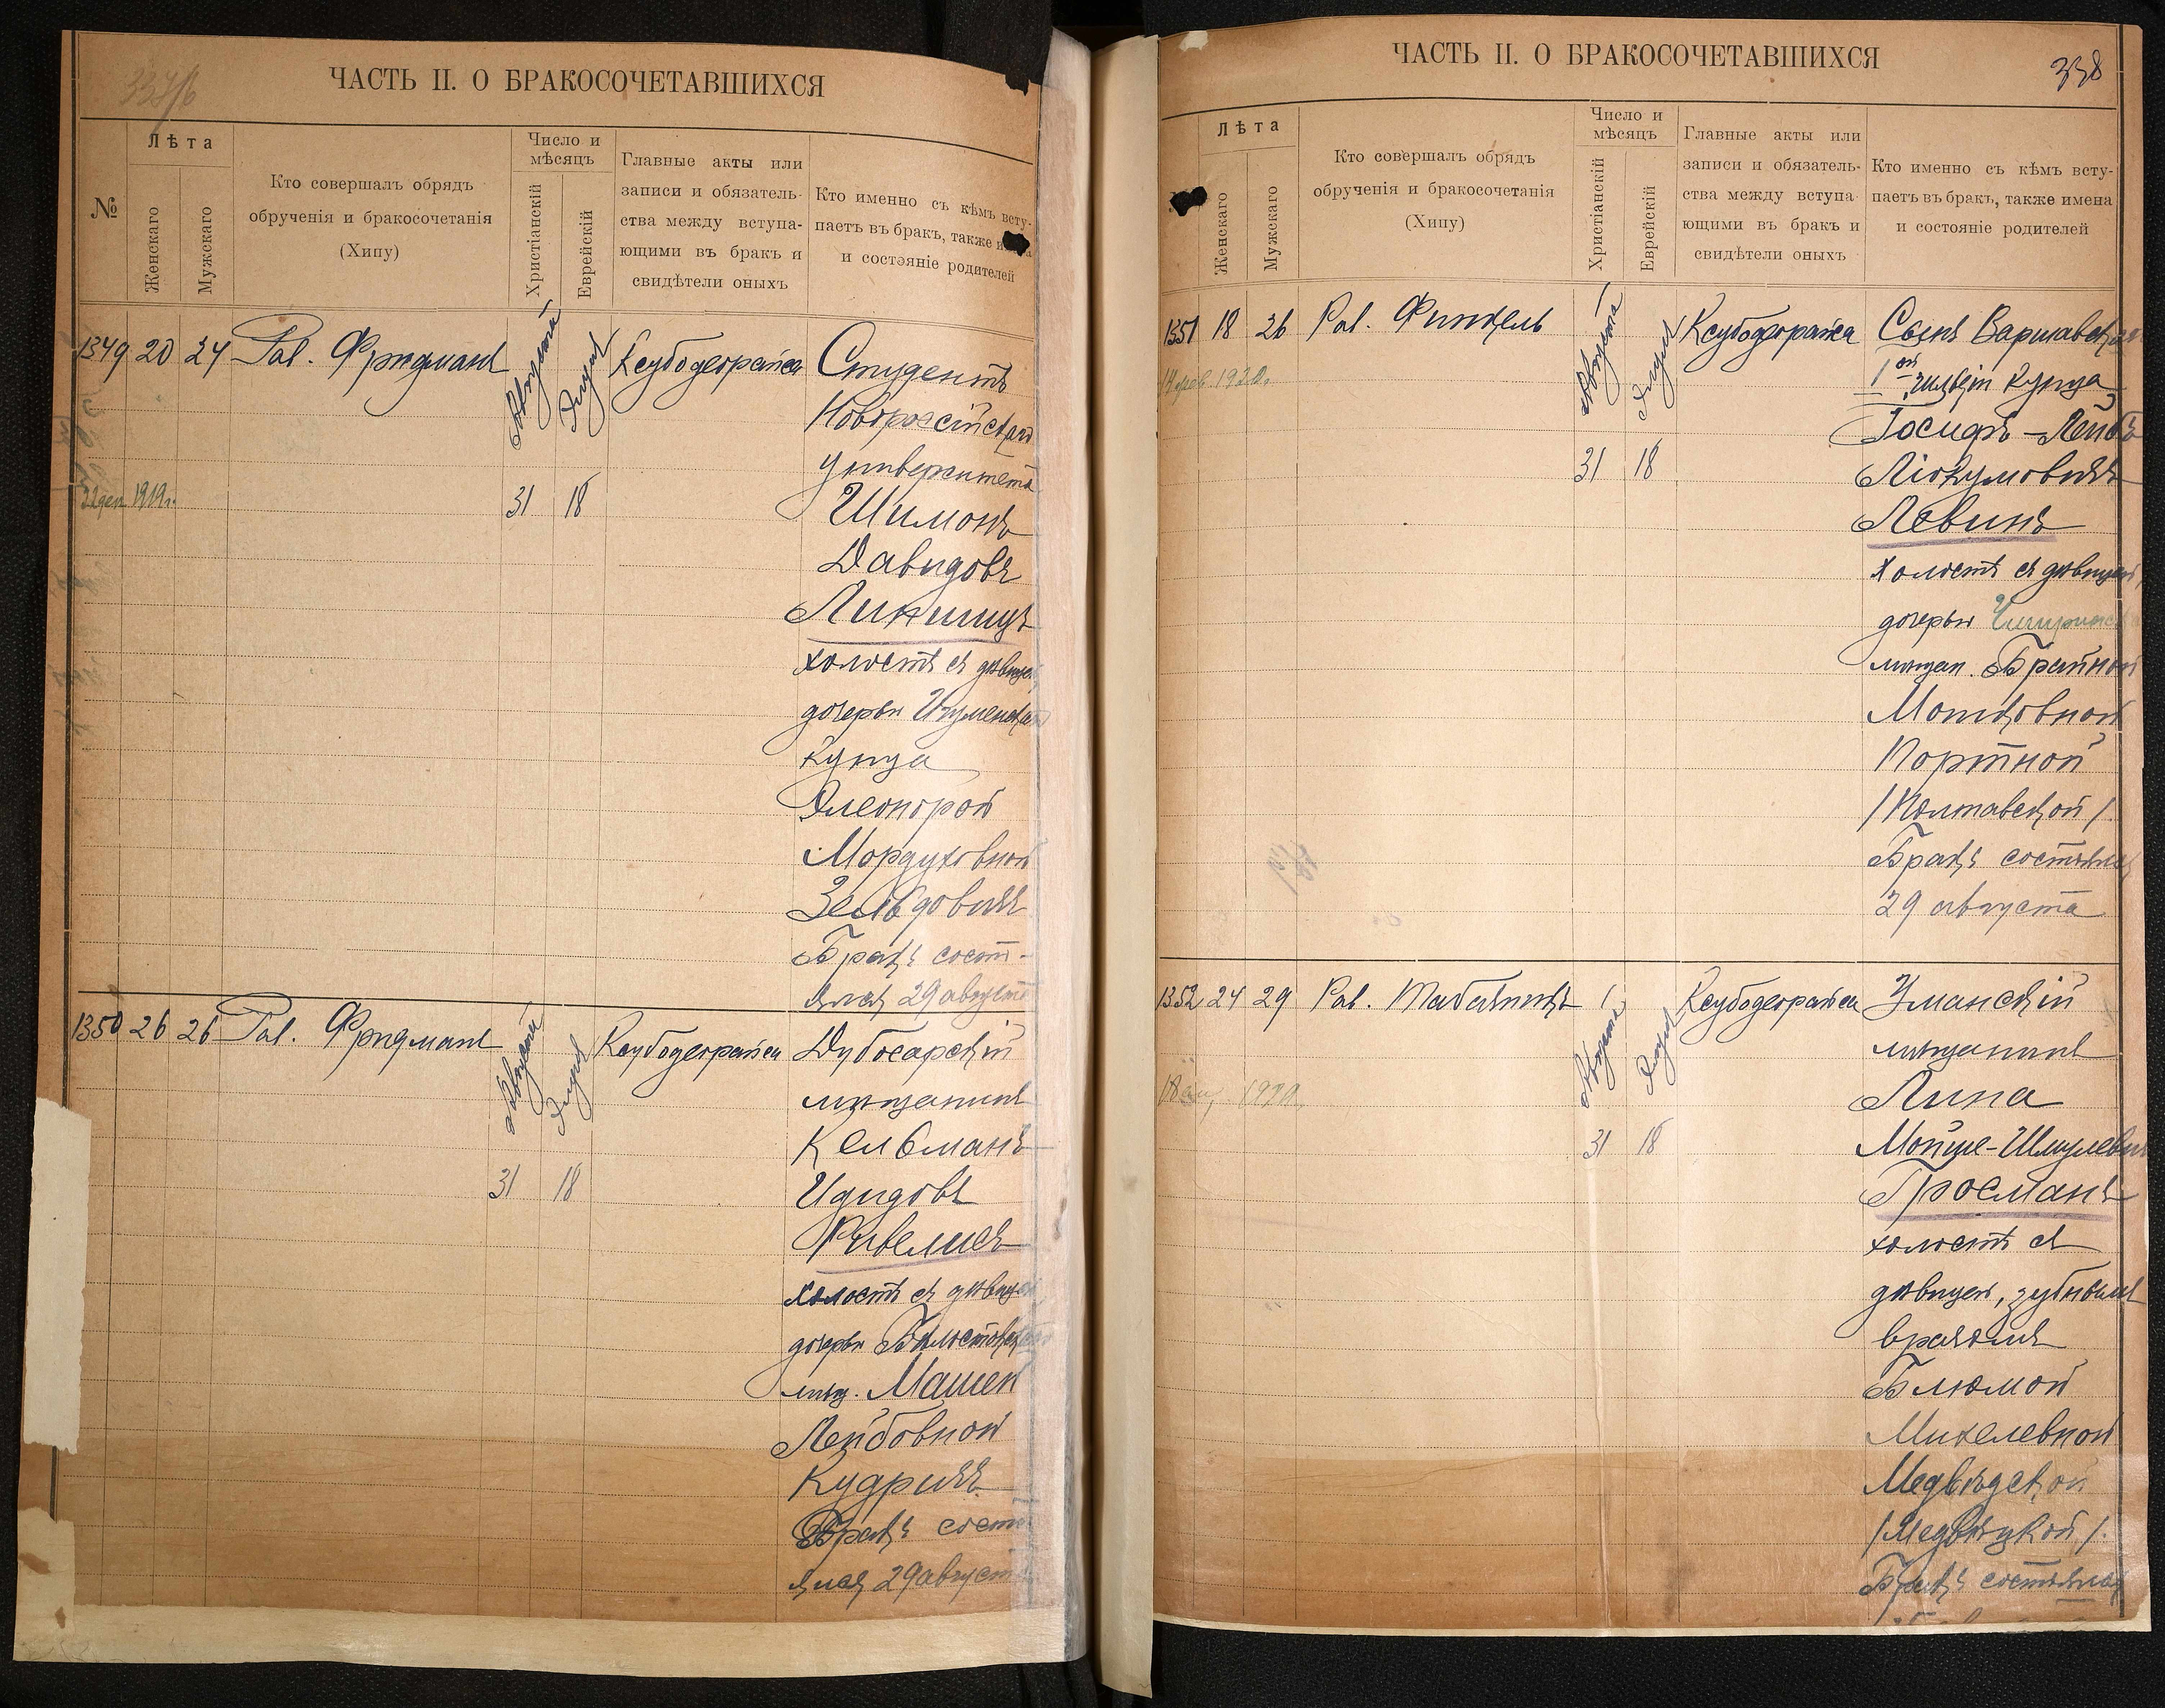 ЧАСТЬ II. О БРАКОСОЧЕТАВШИХСЯ
№
Лѣта
Женскаго
Мужскаго
Кто совершалъ обрядъ
обрученія и бракосочетанія
(Хипу)
Число и
мѣсяцъ
Христіанскій
Еврейскій
Главные акты или
записи и обязатель-
ства между вступа-
ющими въ бракъ и
свидѣтели оныхъ
Кто именно съ кѣмъ всту-
паетъ въ бракъ, также
и состояніе родителей
1349 20 24 Рав. Фридманъ Августа Элула Ксубодеорайса Студентъ
Новороссійскаго
Университета
31 18 Шимонъ
22 дек. 1919 г.
Давидовъ
Липшицъ
холостъ съ дѣвицей
дочерью Игуменскаго
купца
Элеонорой
Мордуховной
Зельдовичъ
Бракъ состо-
ялся 29 августа
1350 26 26 Рав. Фридманъ Августа Элула Ксубодеорайса Дубосарскій
мѣщанинъ
Кельманъ
31 18 Идидовъ
Ривелисъ
холостъ съ дѣвицей
дочерью Бѣлостокскаго
мѣщ. Машей
Лейбовной
Кудричъ
Бракъ состо-
ялся 29 августа
ЧАСТЬ II. О БРАКОСОЧЕТАВШИХСЯ
338
Лѣта
Женскаго
Мужскаго
Кто совершалъ обрядъ
обрученія и бракосочетанія
(Хипу)
Число и
мѣсяцъ
Христіанскій
Еврейскій
Главные акты или
записи и обязатель-
ства между вступа-
ющими въ бракъ и
свидѣтели оныхъ
Кто именно съ кѣмъ всту-
паетъ въ бракъ, также имена
и состояніе родителей
1351 18 26 Рав. Финкель Августа Элула Ксубодеорайса Сынъ Варшавскаго
1ой гильдіи купца
14 фев. 1920 г.
Іосифъ-Лейбъ
31 18
Левинъ
холостъ съ дѣвицей
дочерью
мѣщан. Брайной
Мошковной
Портной
/Полтавской/.
Бракъ состоялся
29 августа
1352 24 29 Рав. Табачникъ Августа Элула Ксубодеорайса Уманскій
мѣщанинъ
1920
Липа
31 18 Мойше-Шмулевъ
Гросманъ
холостъ съ
дѣвицей, зубнымъ
врачомъ
Блюмой
Михелевной
Медвѣдской
/Медвѣцкой/.
Бракъ состоялся